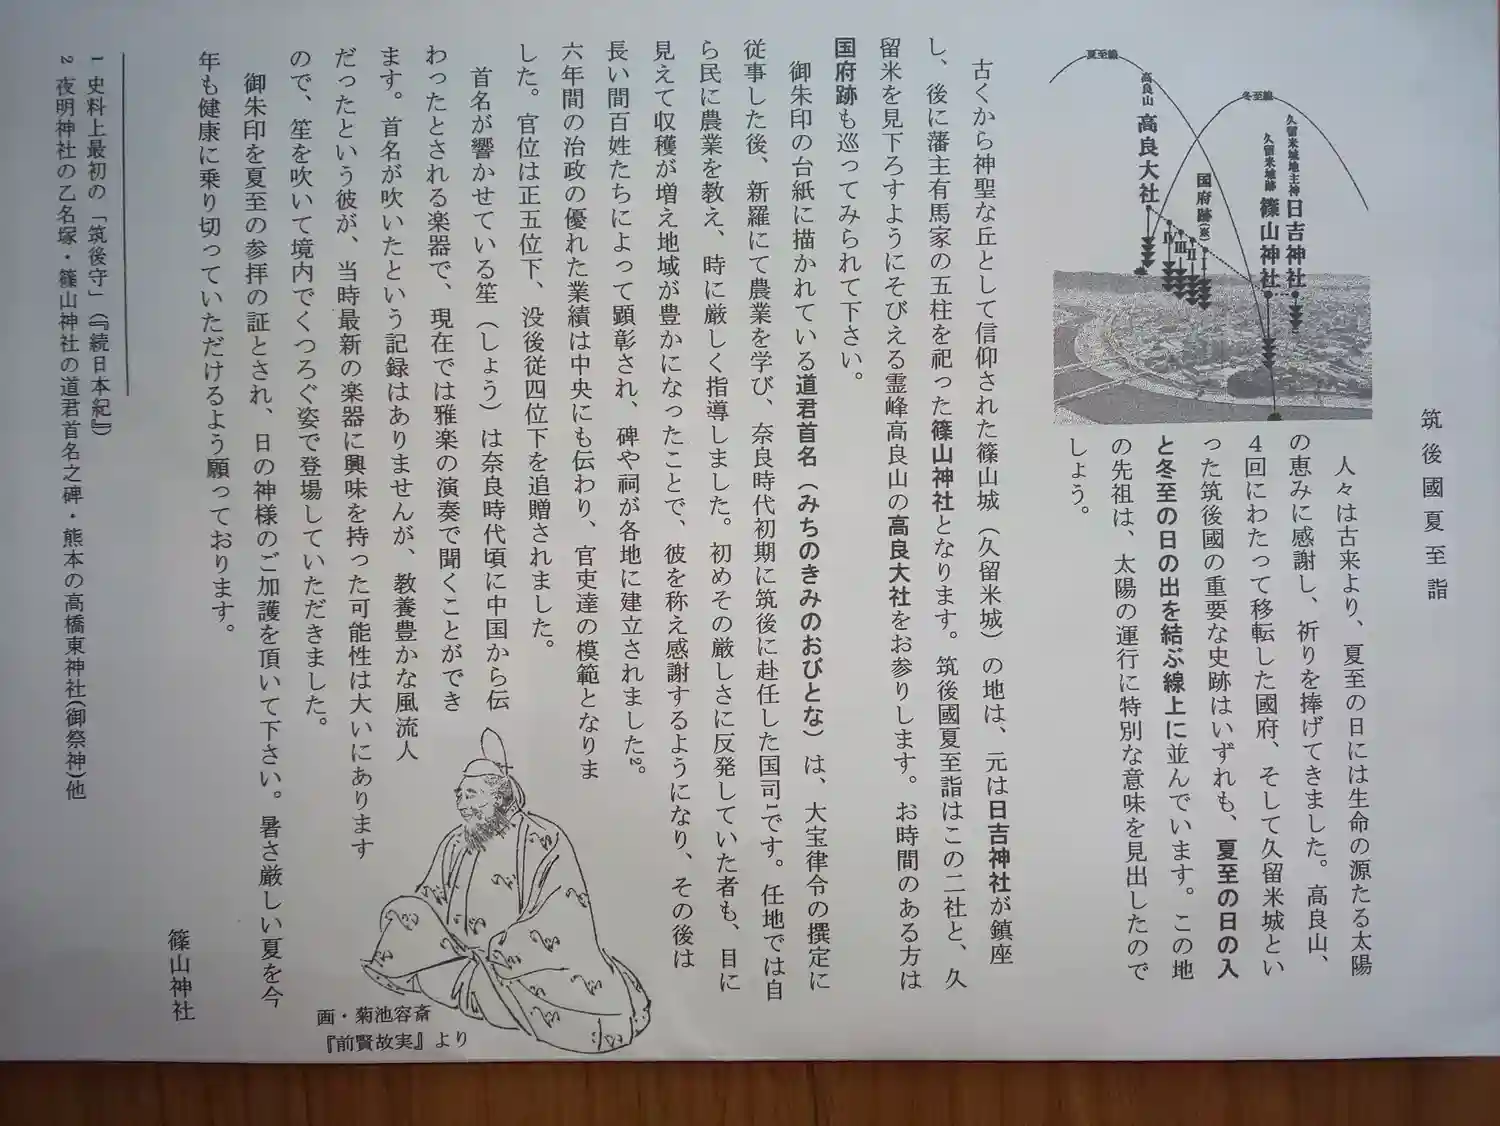 筑後國夏至詣
夏至線
冬至線
高良山
高良大社
国府跡(東)
Ⅳ
Ⅲ
Ⅱ
Ⅰ
久留米城地主神
日吉神社
久留米城跡
篠山神社
人々は古来より、夏至の日には生命の源たる太陽
の恵みに感謝し、祈りを捧げてきました。高良山、
4回にわたって移転した國府、そして久留米城とい
った筑後國の重要な史跡はいずれも、夏至の日の入
と冬至の日の出を結ぶ線上に並んでいます。この地
の先祖は、太陽の運行に特別な意味を見出したので
しょう。
古くから神聖な丘として信仰された篠山城（久留米城）の地は、元は日吉神社が鎮座
し、後に藩主有馬家の五柱を祀った篠山神社となります。筑後國夏至詣はこの二社と、久
留米を見下ろすようにそびえる霊峰高良山の高良大社をお参りします。お時間のある方は
国府跡も巡ってみられて下さい。
御朱印の台紙に描かれている道君首名（みちのきみのおびとな）は、大宝律令の撰定に
従事した後、新羅にて農業を学び、奈良時代初期に筑後に赴任した国司1です。任地では自
ら民に農業を教え、時に厳しく指導しました。初めその厳しさに反発していた者も、目に
見えて収穫が増え地域が豊かになったことで、彼を称え感謝するようになり、その後は
長い間百姓たちによって顕彰され、碑や祠が各地に建立されました2。
六年間の治政の優れた業績は中央にも伝わり、官吏達の模範となりま
した。官位は正五位下、没後従四位下を追贈されました。
首名が響かせている笙（しょう）は奈良時代頃に中国から伝
わったとされる楽器で、現在では雅楽の演奏で聞くことができ
ます。首名が吹いたという記録はありませんが、教養豊かな風流人
だったという彼が、当時最新の楽器に興味を持った可能性は大いにあります
ので、笙を吹いて境内でくつろぐ姿で登場していただきました。
御朱印を夏至の参拝の証とされ、日の神様のご加護を頂いて下さい。暑さ厳しい夏を今
年も健康に乗り切っていただけるよう願っております。
篠山神社
画・菊池容斎
『前賢故実』より
1 史料上最初の「筑後守」（『続日本紀』）
2 夜明神社の乙名塚・篠山神社の道君首名之碑・熊本の高橋東神社(御祭神)他